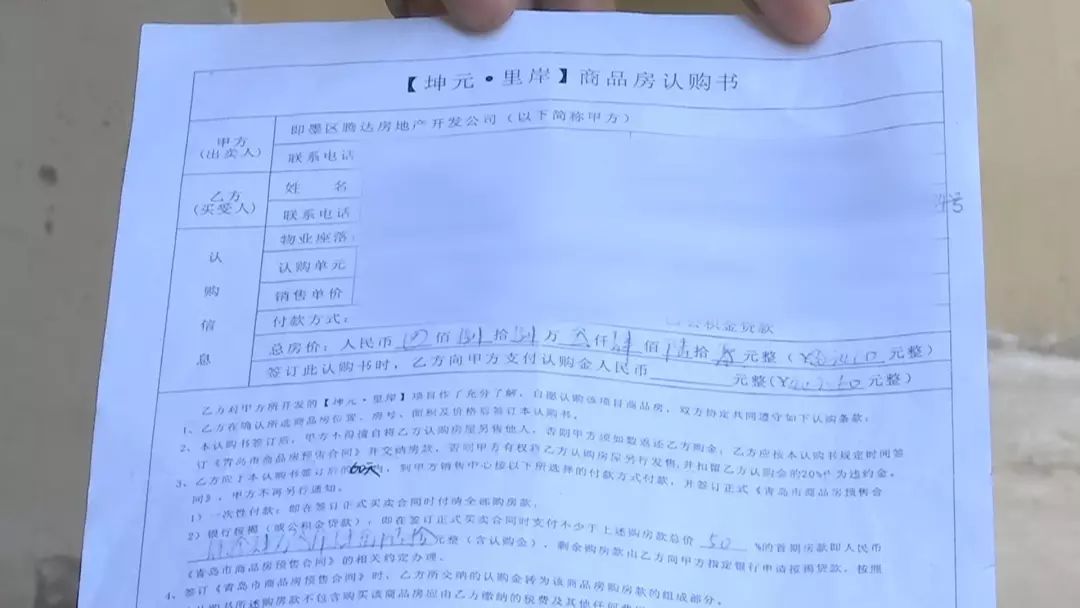 【坤元·里岸】商品房认购书
甲方
(出卖人)
即墨区腾达房地产开发公司（以下简称甲方）
联系电话
乙方
(买受人)
姓 名
联系电话
号
认购信息
物业座落:
认购单元
销售单价
付款方式:
公积金贷款
总房价: 人民币 佰 拾 万 仟 佰 拾 元整（¥ 元整）
签订此认购书时，乙方向甲方支付认购金人民币 元整(¥ 元整）
乙方对甲方所开发的【坤元·里岸】项目作了充分了解，自愿认购该项目商品房，双方协定共同遵守如下认购条款:
1、乙方在确认所选商品房位置、房号、面积及价格后签订本认购书。
2、本认购书签订后，甲方不得擅自将乙方认购房屋另售他人，否则甲方须如数返还乙方购金；乙方应按本认购书规定时间签
订《青岛市商品房预售合同》并交纳房款，否则甲方有权将乙方认购房屋另行发售,并扣留乙方认购金的20%作为违约金。
3、乙方应于本认购书签订后的 60天 内，到甲方销售中心按以下所选择的付款方式付款，并签订正式《青岛市商品房预售合
同》，甲方不再另行通知。
1）一次性付款: 即在签订正式买卖合同时付清全部购房款，
2）银行按揭（或公积金贷款），即在签订正式买卖合同时支付不少于上述购房款总价 50 %的首期房款即人民币
元整（含认购金），剩余购房款由乙方向甲方指定银行申请按揭贷款，按照
《青岛市商品房预售合同》的相关约定办理。
4、签订《青岛市商品房预售合同》时，乙方所交纳的认购金转为该商品房购房款的组成部分。
认购书所述购房款不包含购买该商品房应由乙方缴纳的税费及其他任何费